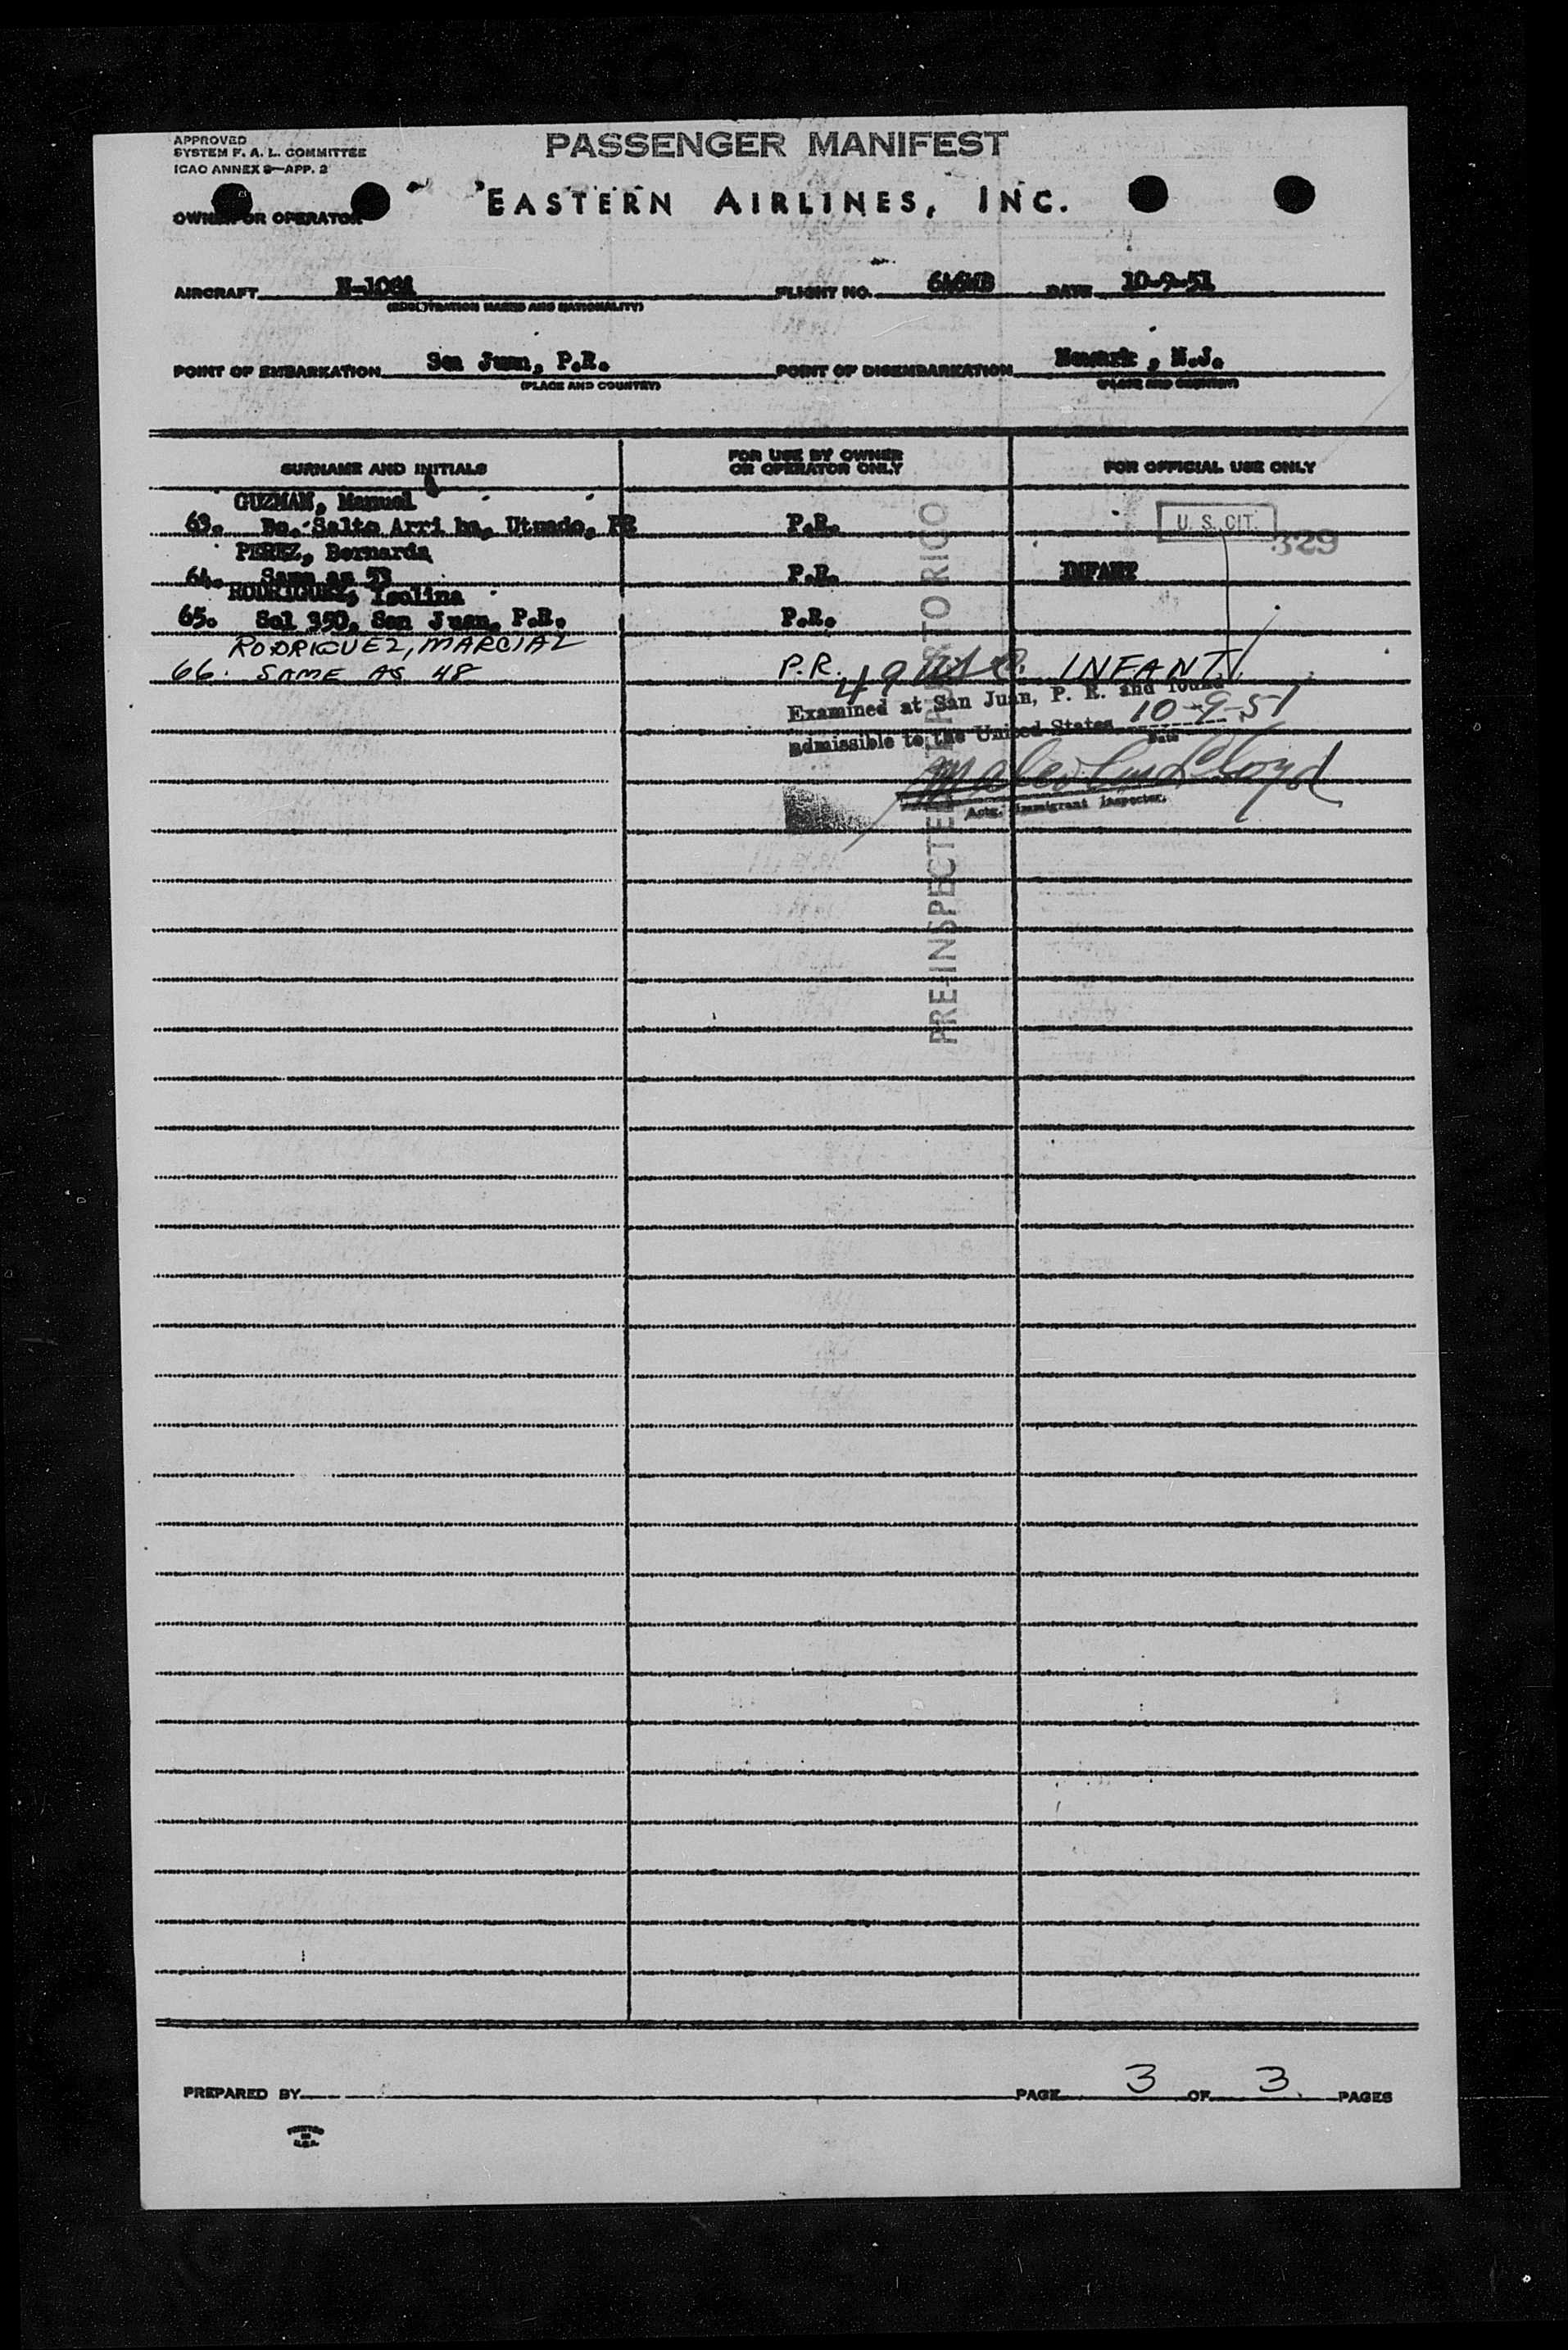 APPROVED
SYSTEM F. A. L. COMMITTEE
ICAO ANNEX 9—APP. 3
PASSENGER MANIFEST
EASTERN AIRLINES, INC.
OWNER OR OPERATOR
AIRCRAFT FLIGHT NO. DATE 10-9-51
(REGISTRATION MARKS AND NATIONALITY)
POINT OF EMBARKATION San Juan, P.R. POINT OF DISEMBARKATION Newark , N.J.
(PLACE AND COUNTRY) (PLACE AND COUNTRY)
SURNAME AND INITIALS FOR USE BY OWNER OR OPERATOR ONLY FOR OFFICIAL USE ONLY
GUZMAN, Manuel
63. Bo. Salto Arri ba, Utuado, PR P.R. U. S. CIT. 329
PEREZ, Bernarda
64. Same as 53 P.R. INFANT
RODRIGUEZ, Isolina
65. Sol 350, San Juan, P.R. P.R.
RODRIGUEZ, MARCIAL
66. SAME AS 48 P.R. INFANT
Examined at San Juan, P. R. and found
admissible to the United States 10-9-51
Date
Actg. Immigrant Inspector.
PRE-INSPECTED PUERTO RICO
PREPARED BY PAGE 3 OF 3 PAGES
PRINTED
IN
U.S.A.